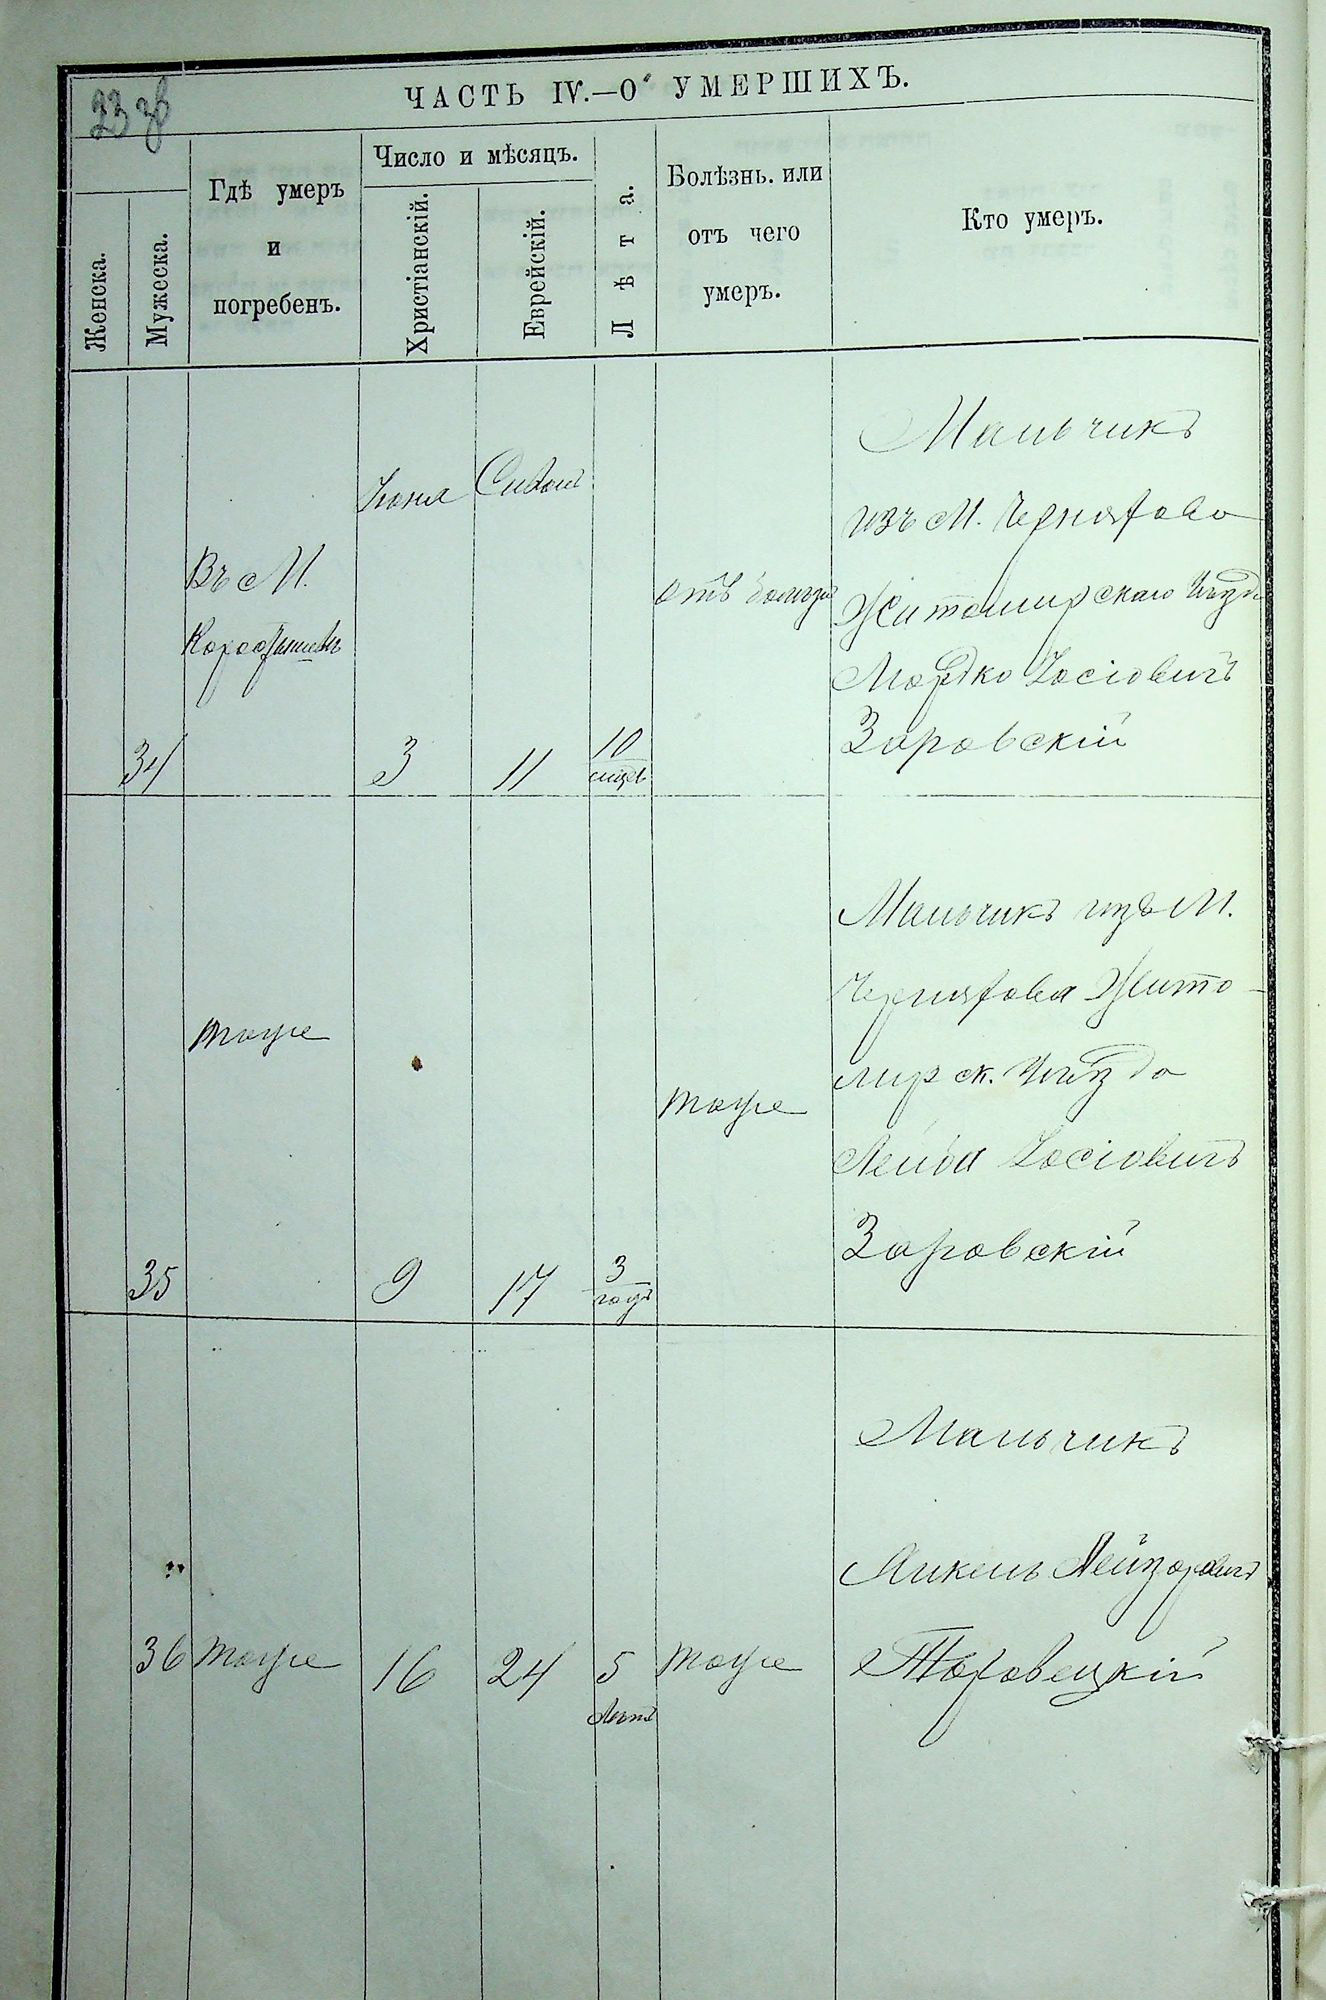 23 зв
ЧАСТЬ IV.—О УМЕРШИХЪ.
Женска.
Мужеска.
Гдѣ умеръ
и
погребенъ.
Число и мѣсяцъ.
Христіанскій.
Еврейскій.
Лѣта.
Болѣзнь. или
отъ чего
умеръ.
Кто умеръ.
Іюня
Сивон
Въ М.
Коростышевѣ
34
3
11
10
мцев
отъ
Мальчикъ
изъ М. Черняхова
Житомирскаго Уѣзда
Мордко Іосіовичъ
Заровскій
35
тоже
9
17
3
года
тоже
Мальчикъ изъ М.
Черняхова Жито-
мирск. Уѣзда
Лейба Іосіовичъ
Заровскій
36
тоже
16
24
5
Летъ
тоже
Мальчикъ
Янкель Лейзоровичъ
Торовецкій